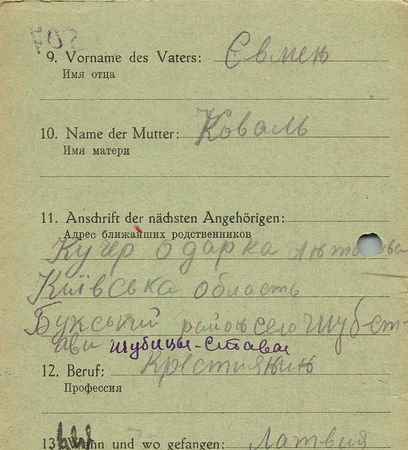 9. Vorname des Vaters: Євмен
Имя отца
10. Name der Mutter: Коваль
Имя матери
11. Anschrift der nächsten Angehörigen:
Адрес ближайших родственников
Кучер Одарка
Київська область
Бужський район село Шубст-
ави Шубицы-Ставы
12. Beruf: Крестіянин
Профессия
13. Wann und wo gefangen: Латвия